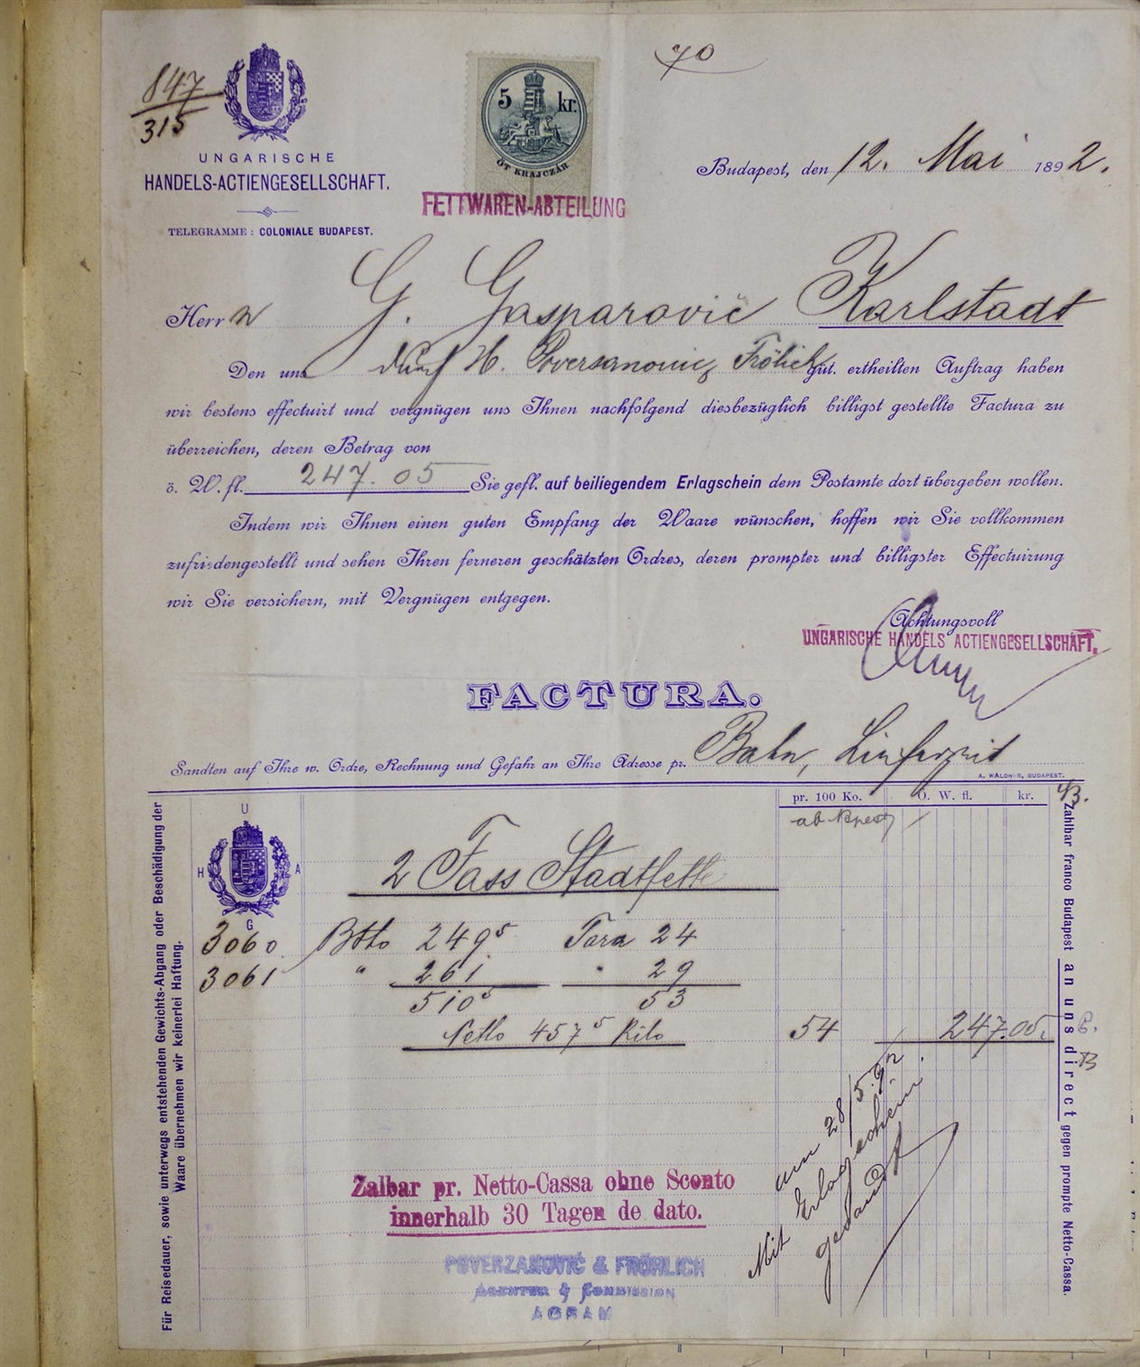 847
315
70
5 kr.
ÖT KRAJCZÁR
UNGARISCHE
HANDELS-ACTIENGESELLSCHAFT.
TELEGRAMME: COLONIALE BUDAPEST.
FETTWAREN-ABTEILUNG
Budapest, den 12. Mai 1892.
Herrn G. Gasparovič Karlstadt
Den uns durch H. Poversanovic Frölich güt. ertheilten Auftrag haben
wir bestens effectuirt und vergnügen uns Ihnen nachfolgend diesbezüglich billigst gestellte Factura zu
überreichen, deren Betrag von
ö. W. fl. 247.05 Sie gefl. auf beiliegendem Erlagschein dem Postamte dort übergeben wollen.
Indem wir Ihnen einen guten Empfang der Waare wünschen, hoffen wir Sie vollkommen
zufriedengestellt und sehen Ihren ferneren geschätzten Ordres, deren prompter und billigster Effectuirung
wir Sie versichern, mit Vergnügen entgegen.
Achtungsvoll
UNGARISCHE HANDELS ACTIENGESELLSCHAFT.
FACTURA.
Sandten auf Ihre w. Ordre, Rechnung und Gefahr an Ihre Adresse pr. Bahn, Lieferzeit
A. WALDNER, BUDAPEST.
pr. 100 Ko. Ö. W. fl. kr.
B.
U
H A
G
2 Fass Stadtfette
3060 Btto 249⁵ Tara 24
3061 " 261. " 29
510⁵ 53
Netto 457⁵ Kilo 54 247.05.
B
am 28/5.92
Mit Erlagschein
gesandt
Zalbar pr. Netto-Cassa ohne Sconto
innerhalb 30 Tagen de dato.
POVERZANOVIĆ & FRÖHLICH
AGENTUR & COMMISSION
AGRAM
Für Reisedauer, sowie unterwegs entstehenden Gewichts-Abgang oder Beschädigung der
Waare übernehmen wir keinerlei Haftung.
Zahlbar franco Budapest an uns direct gegen prompte Netto-Cassa.